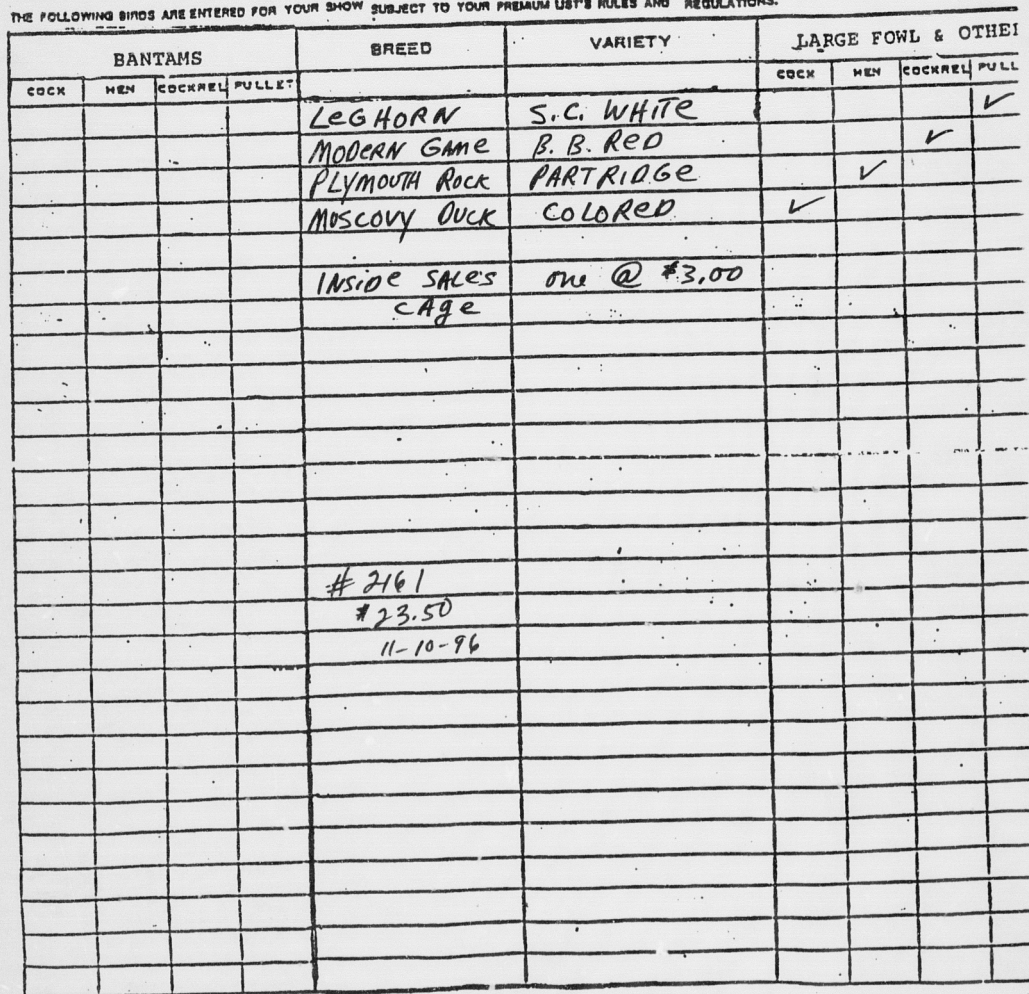 THE FOLLOWING BIRDS ARE ENTERED FOR YOUR SHOW SUBJECT TO YOUR PREMIUM LIST'S RULES AND REGULATIONS.
BANTAMS BREED VARIETY LARGE FOWL & OTHER
COCK HEN COCKREL PULLET COCK HEN COCKREL PULL
LEGHORN S.C. WHITE ✓
MODERN GAME B.B. RED ✓
PLYMOUTH ROCK PARTRIDGE ✓
MUSCOVY DUCK COLORED ✓
INSIDE SALES one @ $3.00
CAGE
# 2161
$23.50
11-10-96